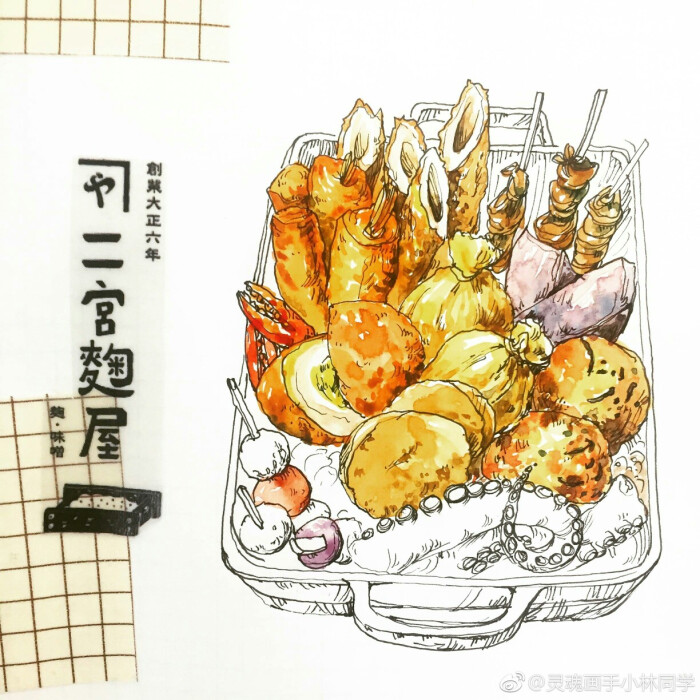 創業大正六年
や
二宮麴屋
麹・味噌
@灵魂画手小林同学